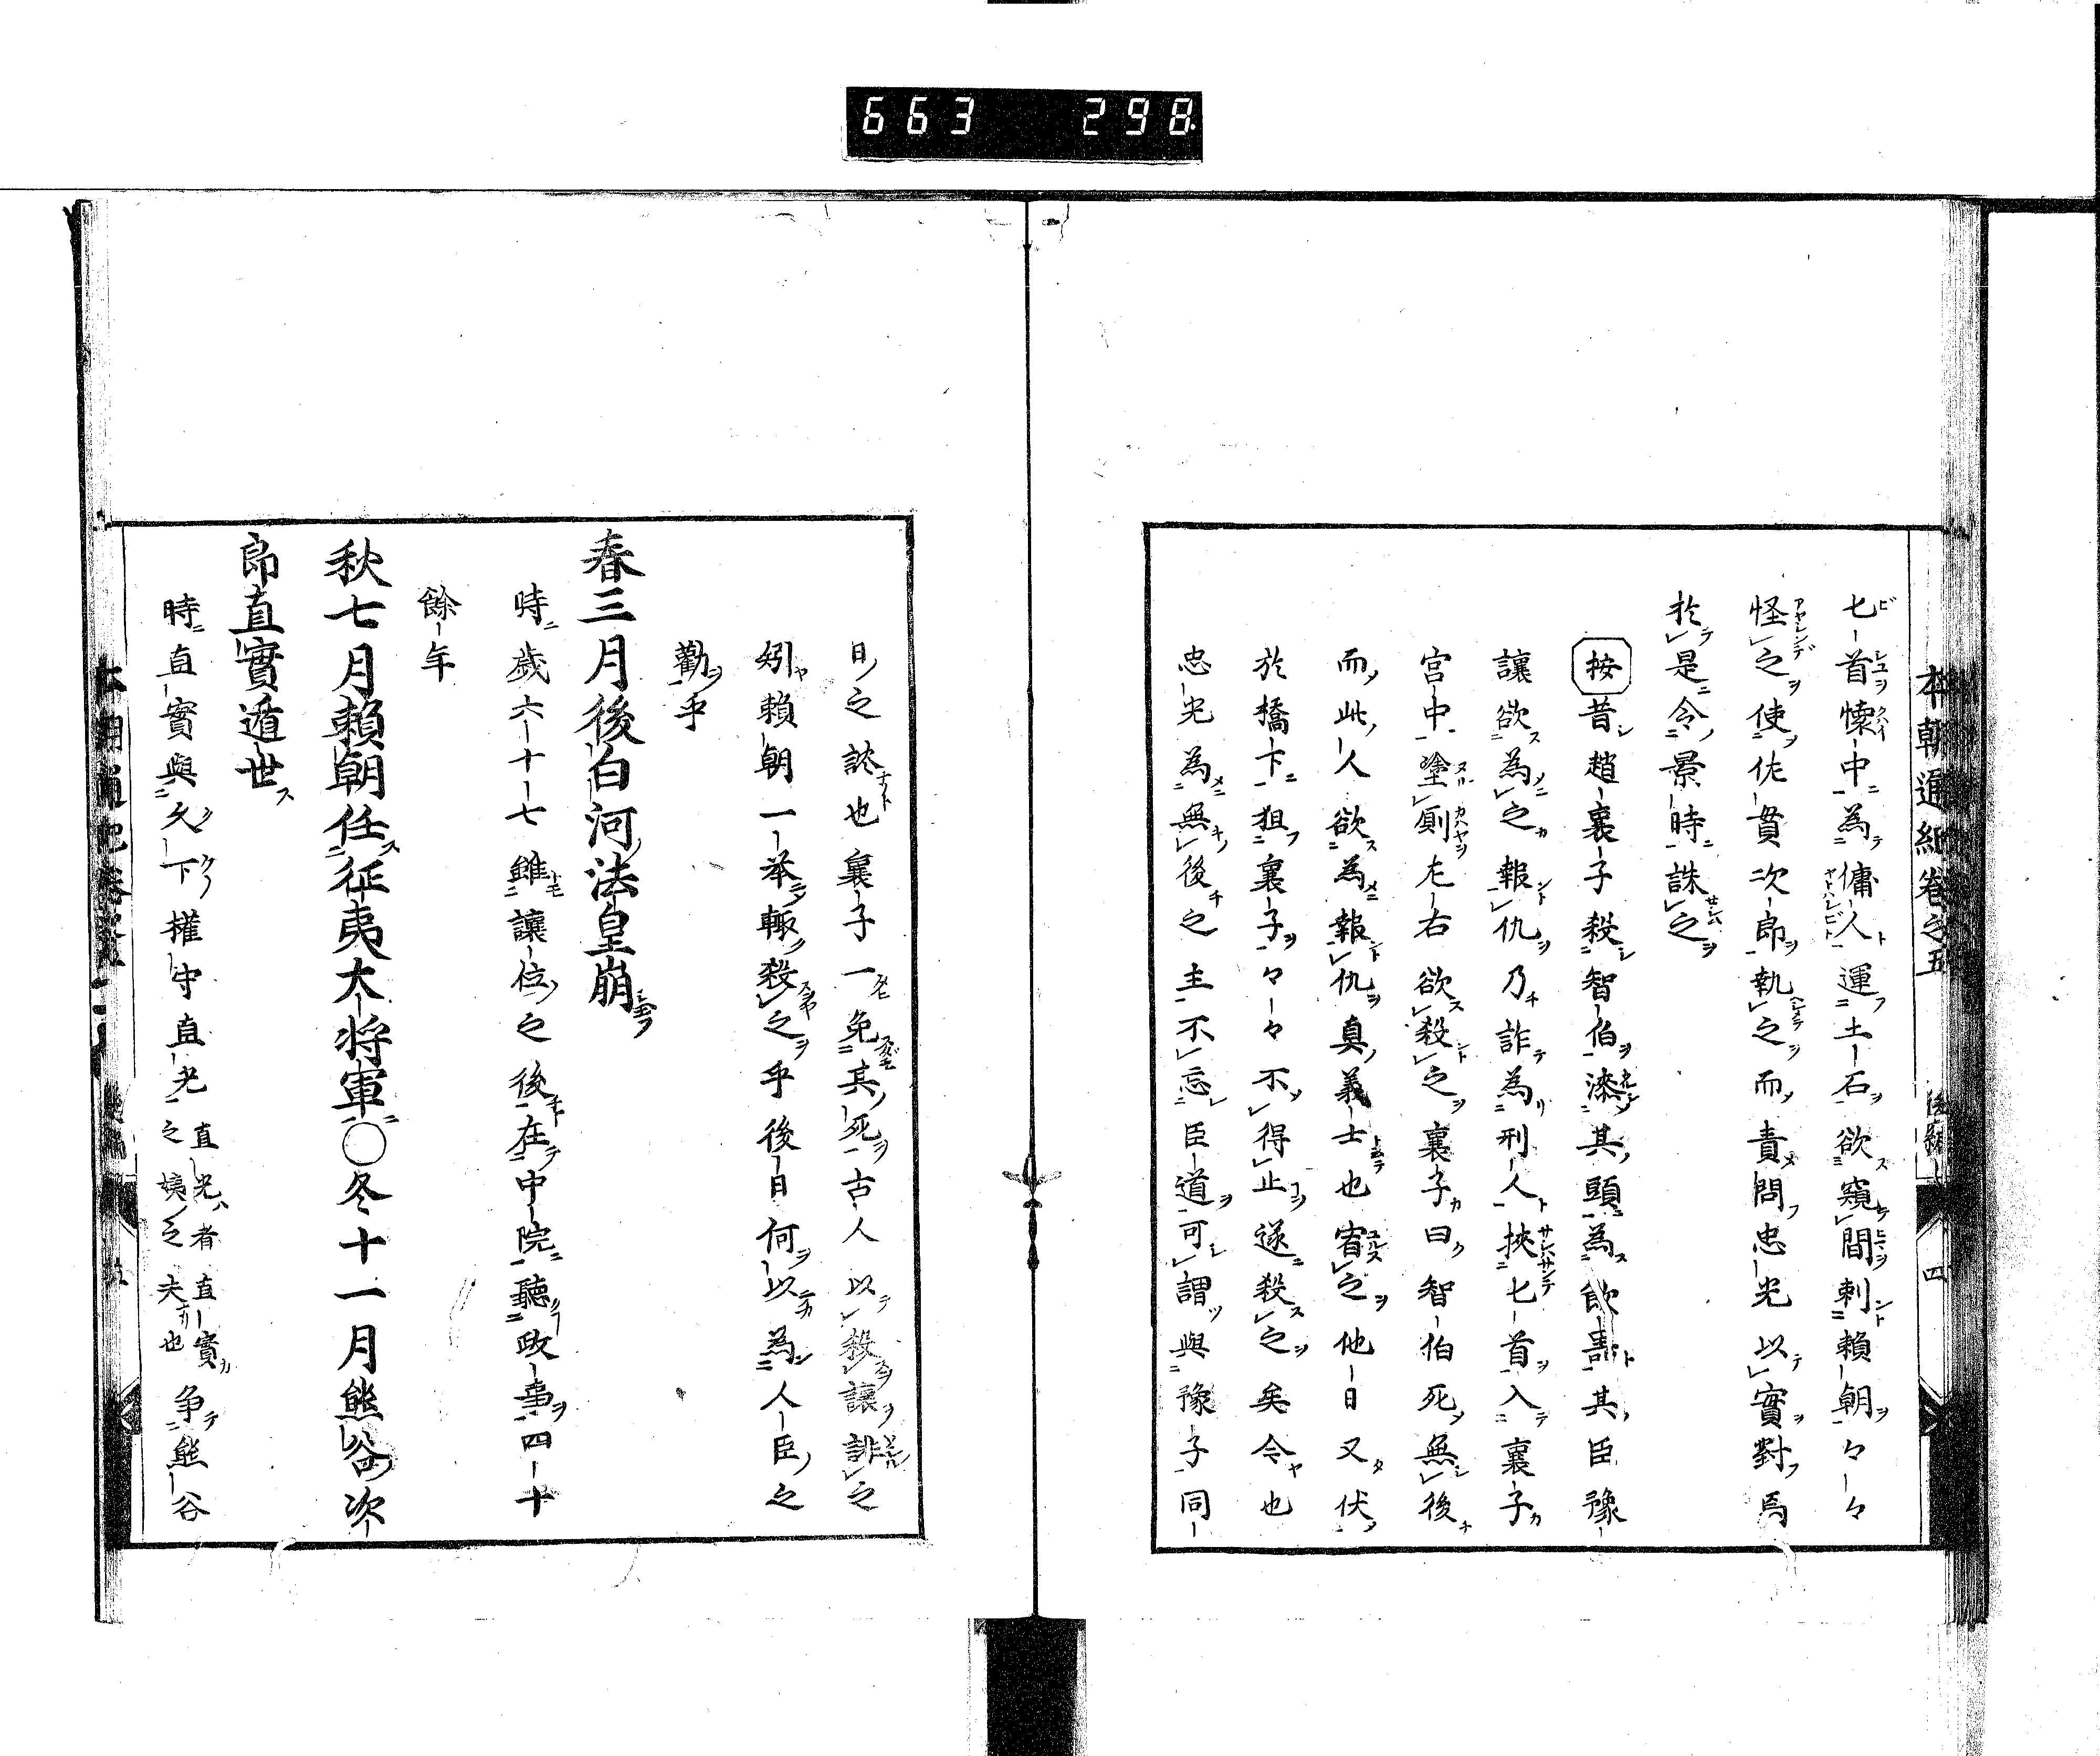 663 298
本朝通紀卷之五 後編 四
匕首懷中為傭人運土石欲窺間刺賴朝々々
怪之使佐貫次郎執之而責問忠光以實對焉
於是令景時誅之
按昔趙襄子殺智伯漆其頭為飲器其臣豫
讓欲為之報仇乃詐為刑人挾匕首入襄子
宮中塗厠左右欲殺之襄子曰智伯死無後
而此人欲為報仇真義士也宥之他日又伏
於橋下狙襄子々々不得止遂殺之矣今也
忠光為無後之主不忘臣道可謂與豫子同
日之談也襄子一免其死古人以殺讓誹之
矧賴朝一举輙殺之乎後日何以為人臣之
勸乎
春三月後白河法皇崩
時歳六十七雖讓位之後在中院聽政事四十
餘年
秋七月賴朝任征夷大将軍○冬十一月熊谷次
郎直實遁世
時直實與久下權守直光直光者直實之姨之夫也争熊谷